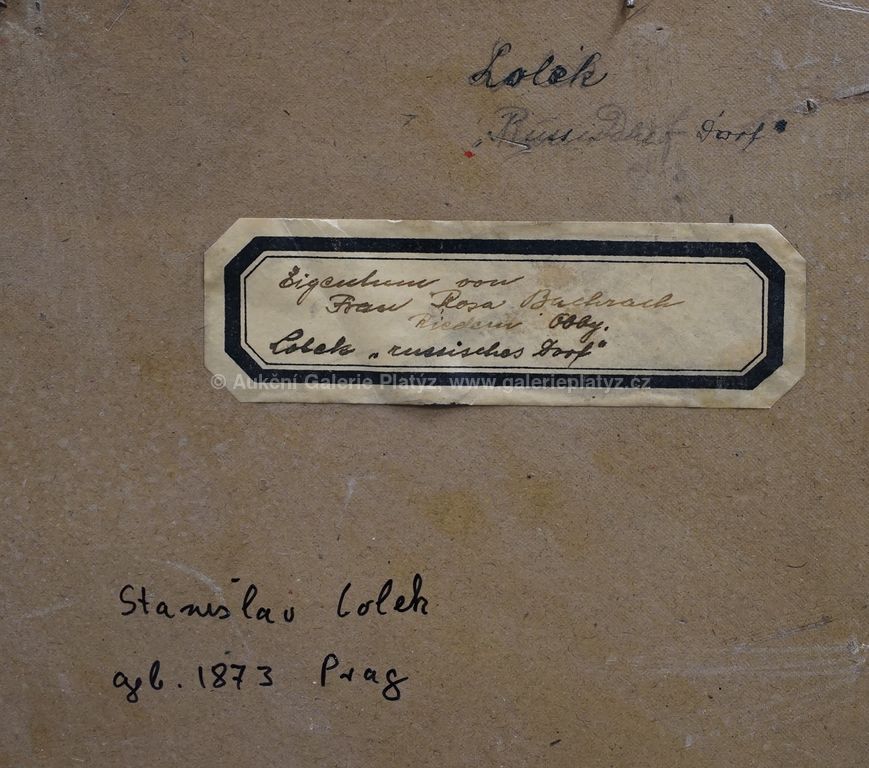 Lolek
„Russ Dorf"
Eigentum von
Frau Rosa Bachrach
Riedern Obby.
Lolek „russisches Dorf"
© Aukční Galerie Platýz, www.galerieplatyz.cz
Stanislav Lolek
geb. 1873 Prag